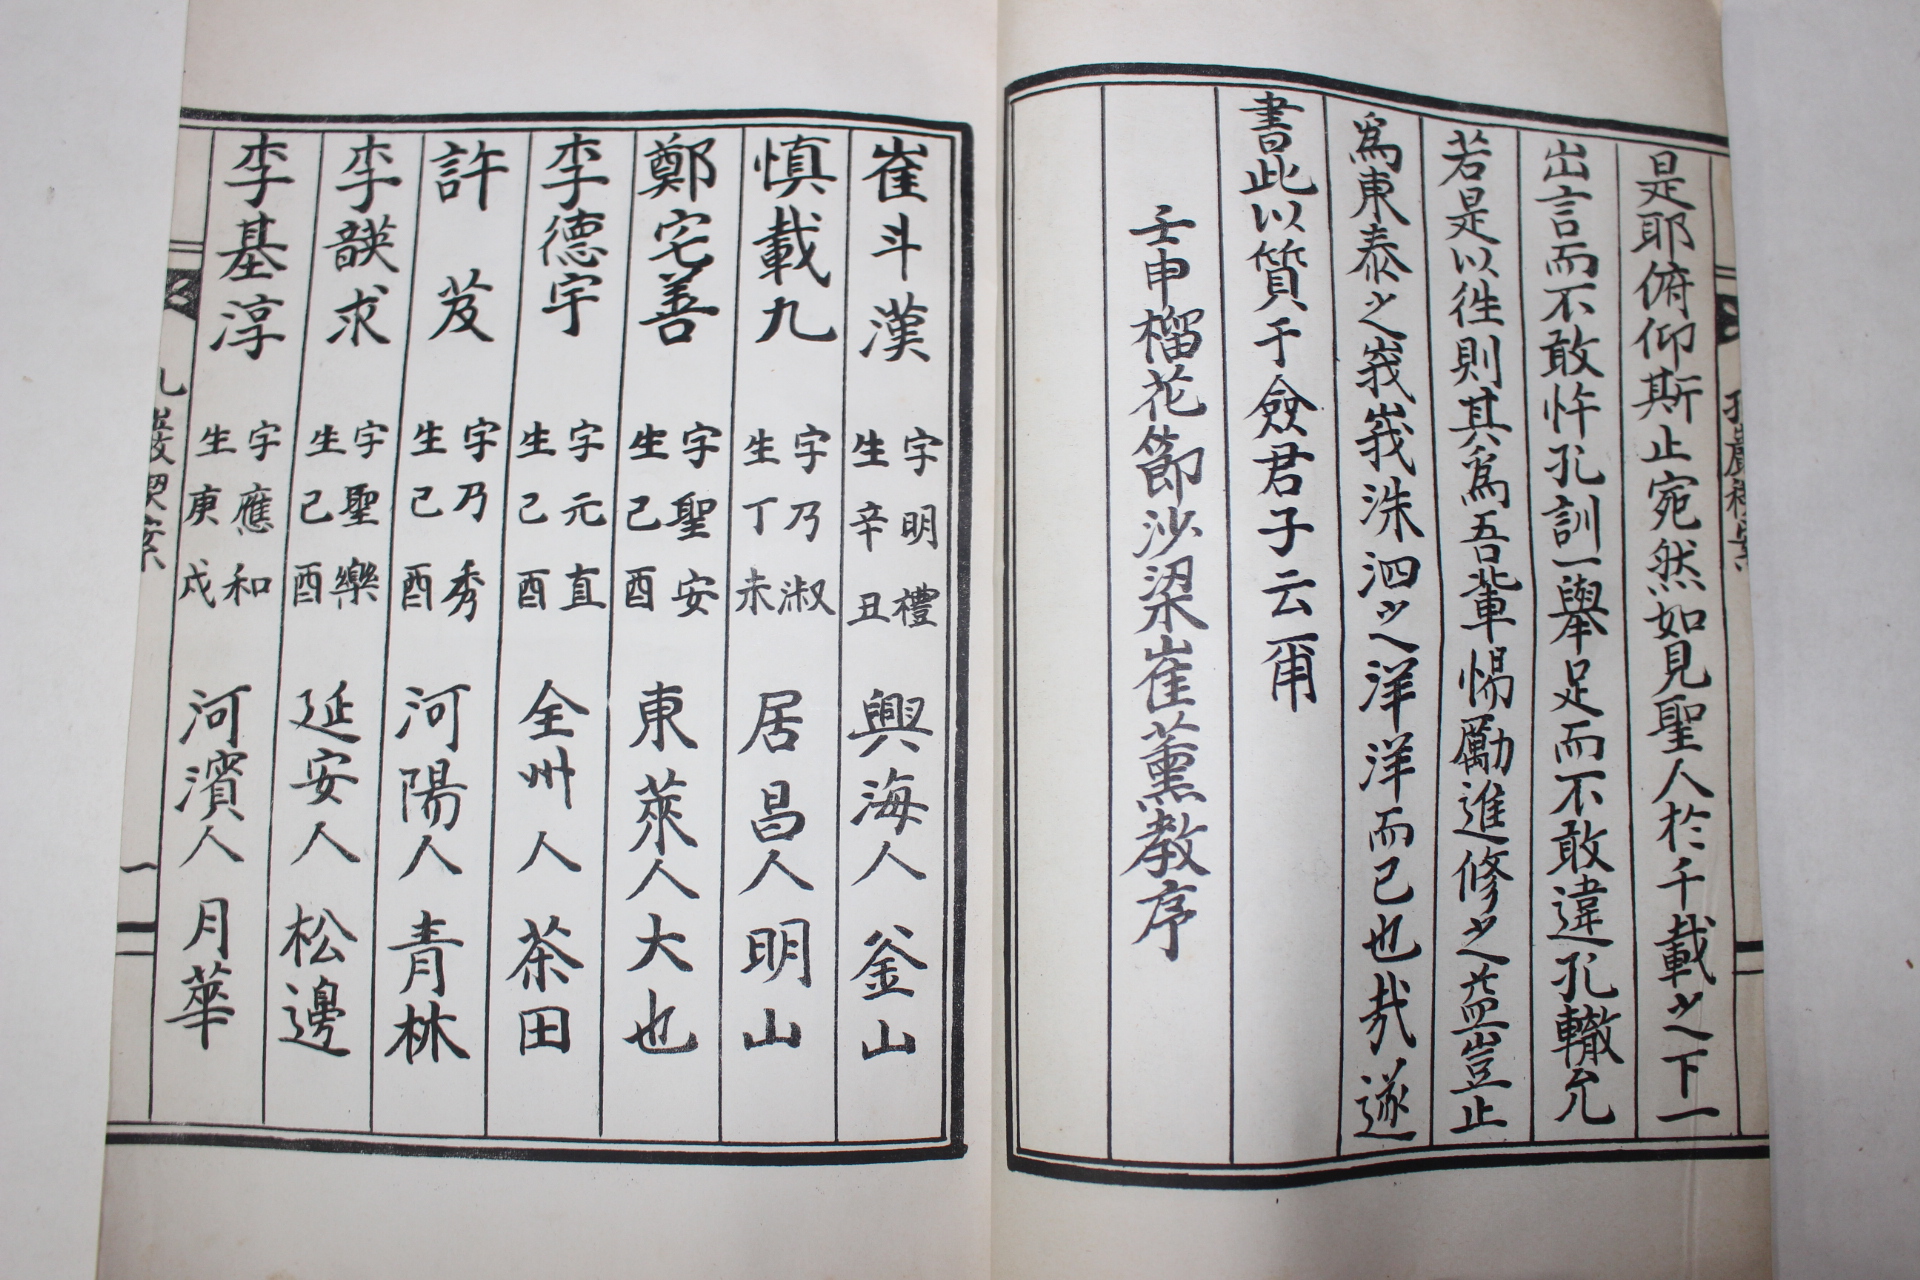 是耶俯仰斯止宛然如見聖人於千載之下一
出言而不敢忤孔訓一擧足而不敢違孔轍允
若是以往則其爲吾輩惕勵進修之益豈止
爲東泰之峩峩洙泗之洋洋而已也哉遂
書此以質于僉君子云爾
壬申榴花節沙梁崔薰敎序
崔斗漢 字明禮 生辛丑 興海人 釜山
愼載九 字乃淑 生丁未 居昌人 明山
鄭宅善 字聖安 生己酉 東萊人 大也
李德宇 字元直 生己酉 全州人 茶田
許芨 字乃秀 生己酉 河陽人 青林
李韺求 字聖樂 生己酉 延安人 松邊
李基淳 字應和 生庚戌 河濱人 月華
一